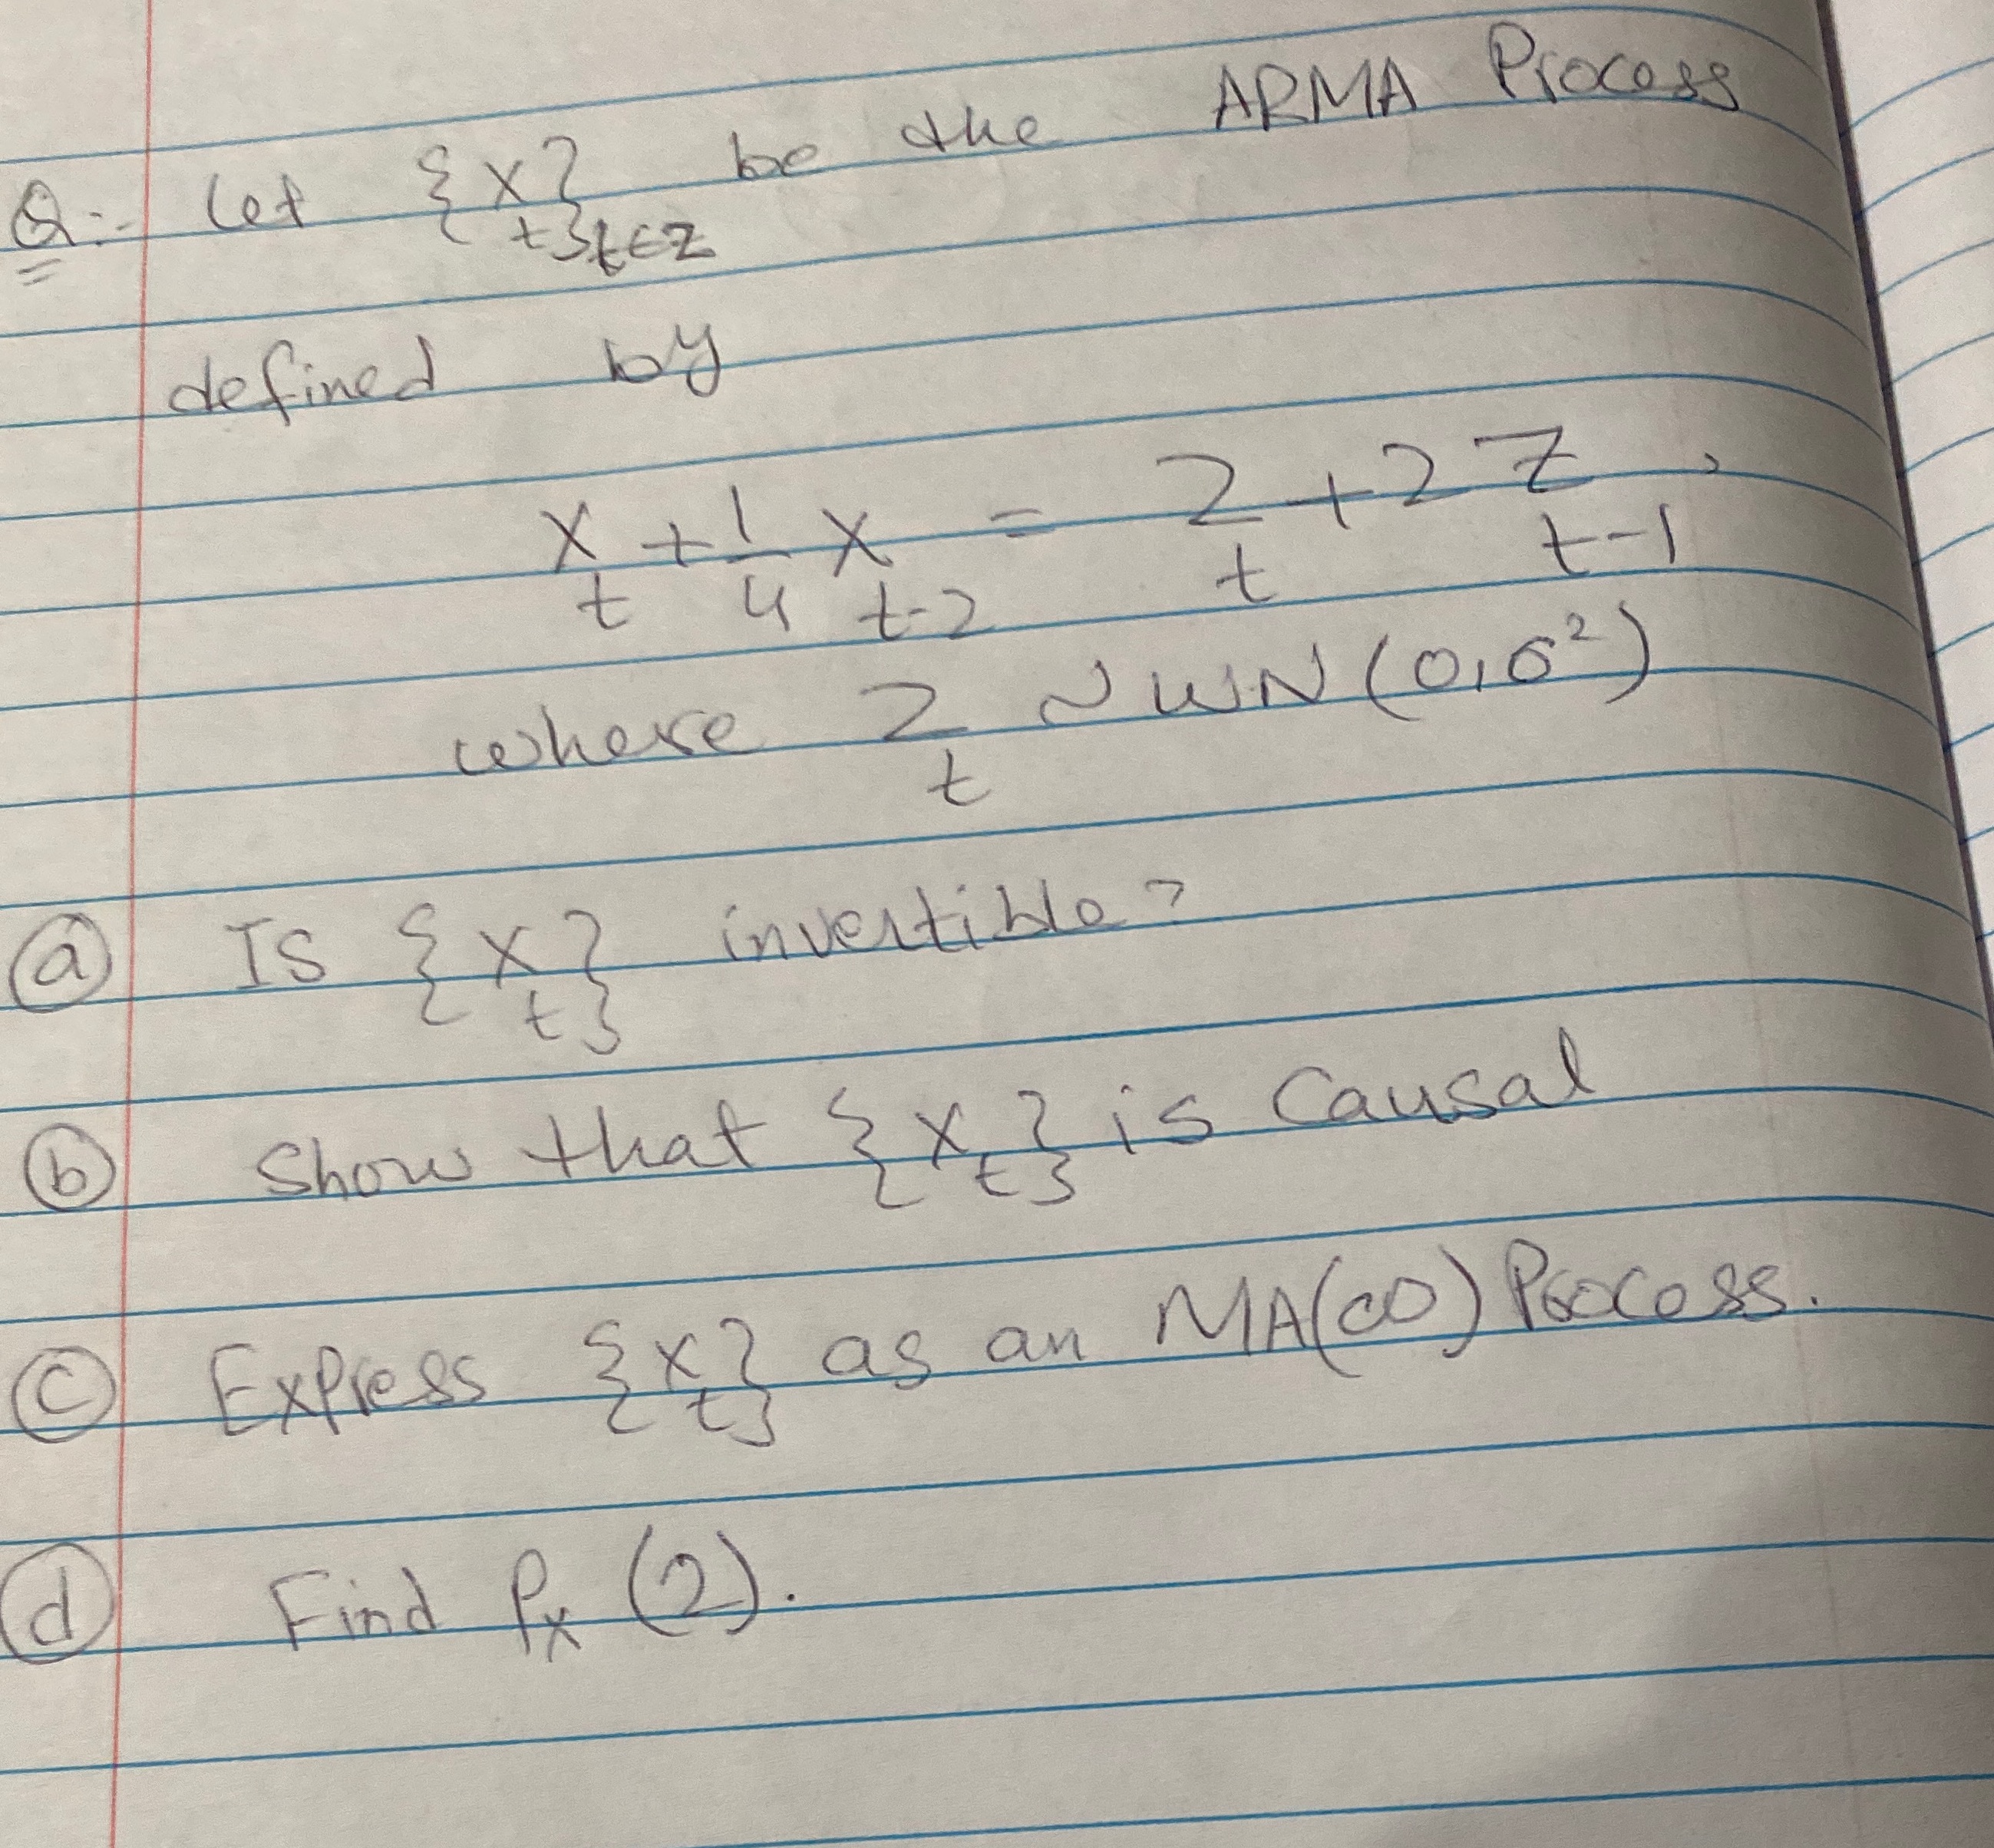 Q:- Let {X_t}_{t∈Z} be the ARMA Process
defined by
X_t + 1/4 X_{t-2} = Z_t + 2 Z_{t-1},
where Z_t ~ WN(0,σ²)
(a) Is {X_t} invertible?
(b) Show that {X_t} is Causal
(c) Express {X_t} as an MA(∞) Process.
(d) Find ρ_X (2).